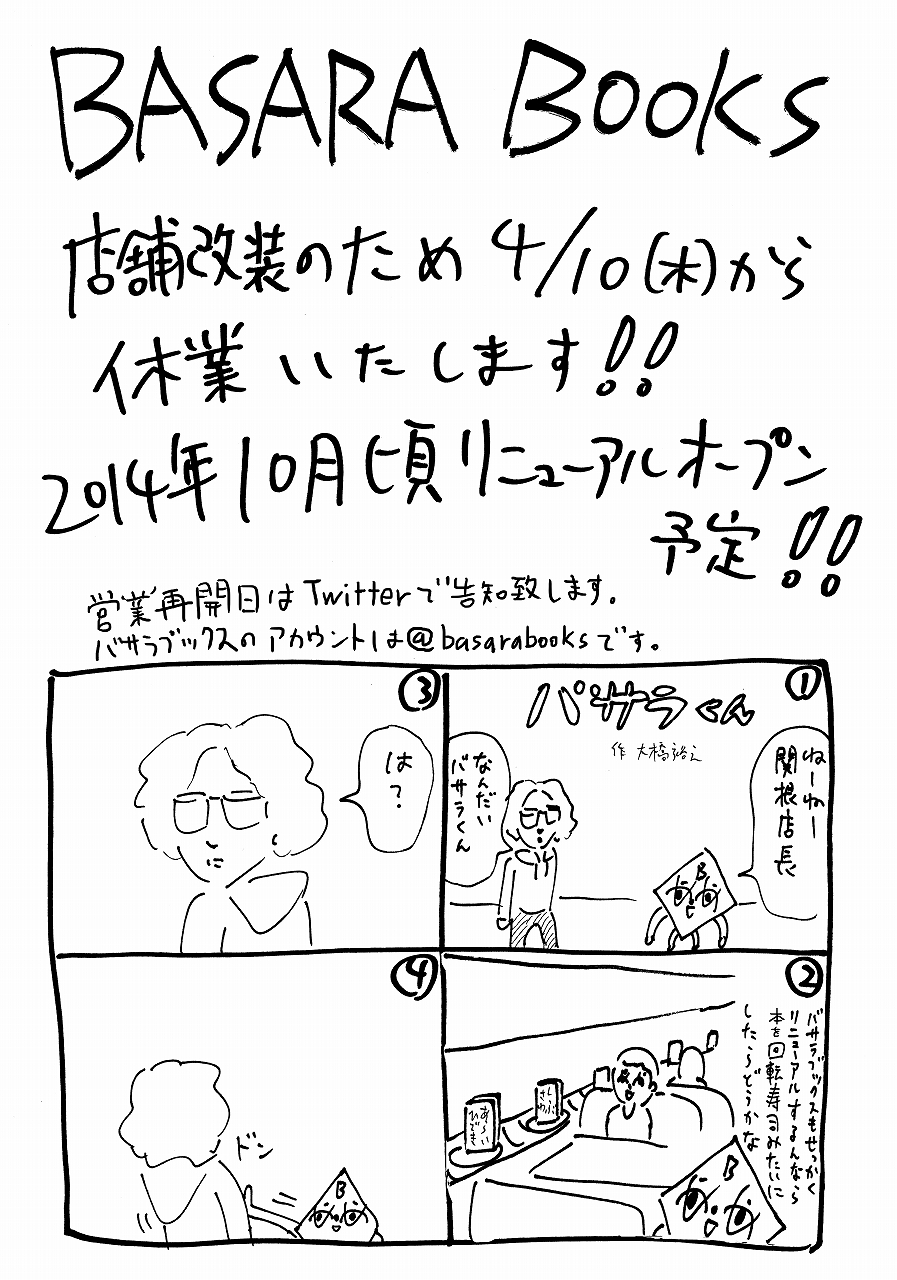 BASARA BOOKS
店舗改装のため 4/10(木)から
休業いたします!!
2014年10月頃リニューアルオープン
予定!!
営業再開日はTwitterで告知致します。
バサラブックスのアカウントは@basarabooksです。
①
バサラくん
作 大橋裕之
ねーねー
関根店長
なんだい
バサラくん
②
バサラブックスもせっかく
リニューアルするんなら
本を回転寿司みたいに
したらどうかな
しぶさわ
あらい
ひでき
B
③
は?
④
ドン
B